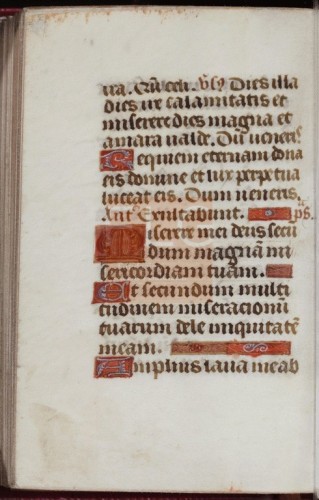 tra. Qñ celi. v̄s Dies illa
dies ire calamitatis et
miserie dies magna et
amara valde. Dū veneris
Requiem eternam dona
eis domine et lux perpetua
luceat eis. Dum veneris.
Ant̄ Exultabunt. ps.
Miserere mei deus secū
dum magnā mi
sericordiam tuam.
Et secundum multi
tudinem miseracionū
tuarum dele iniquitatē
meam.
Amplius lava me ab